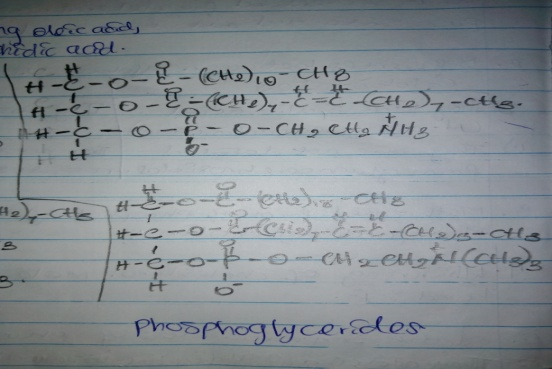 ng oleic acid,
nidic acid.
H
H-C-O-C-(CH2)10-CH3
O
H-C-O-C-(CH2)7-C=C-(CH2)7-CH3.
O H H
H-C-O-P-O-CH2 CH2 NH3
O +
H O-
H2)7-CH3
3
3.
H O
H-C-O-C-(CH2)18-CH3
O H H
H-C-O-C-(CH2)7-C=C-(CH2)3-CH3
O +
H-C-O-P-O-CH2 CH2 N(CH3)3
H O-
Phosphoglycerides